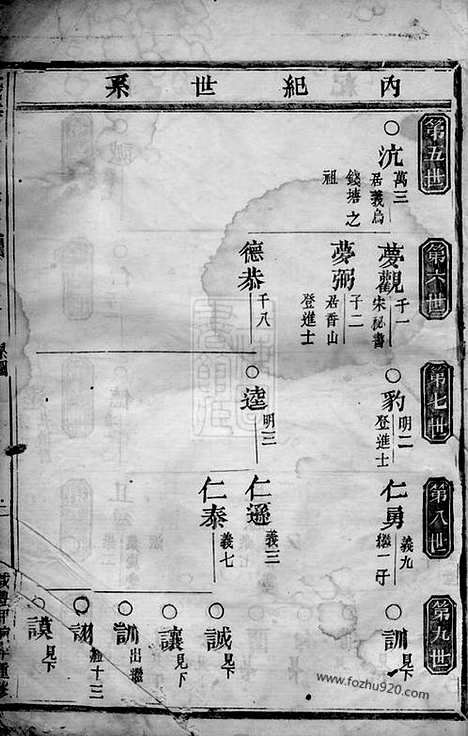 內紀世系
第五世
沆 萬三
居義烏
錢塘之
祖
第六世
夢觀 千一
宋祕書
夢弼 子二
居香山
登進士
德恭 千八
第七世
豹 明二
登進士
逵 明三
第八世
仁勇 義九
繼一子
仁遜 義三
仁泰 義七
第九世
訓 見下
誠 見下
讓 見下
訓 出繼
詡
謨 見下
www.fozhu920.com